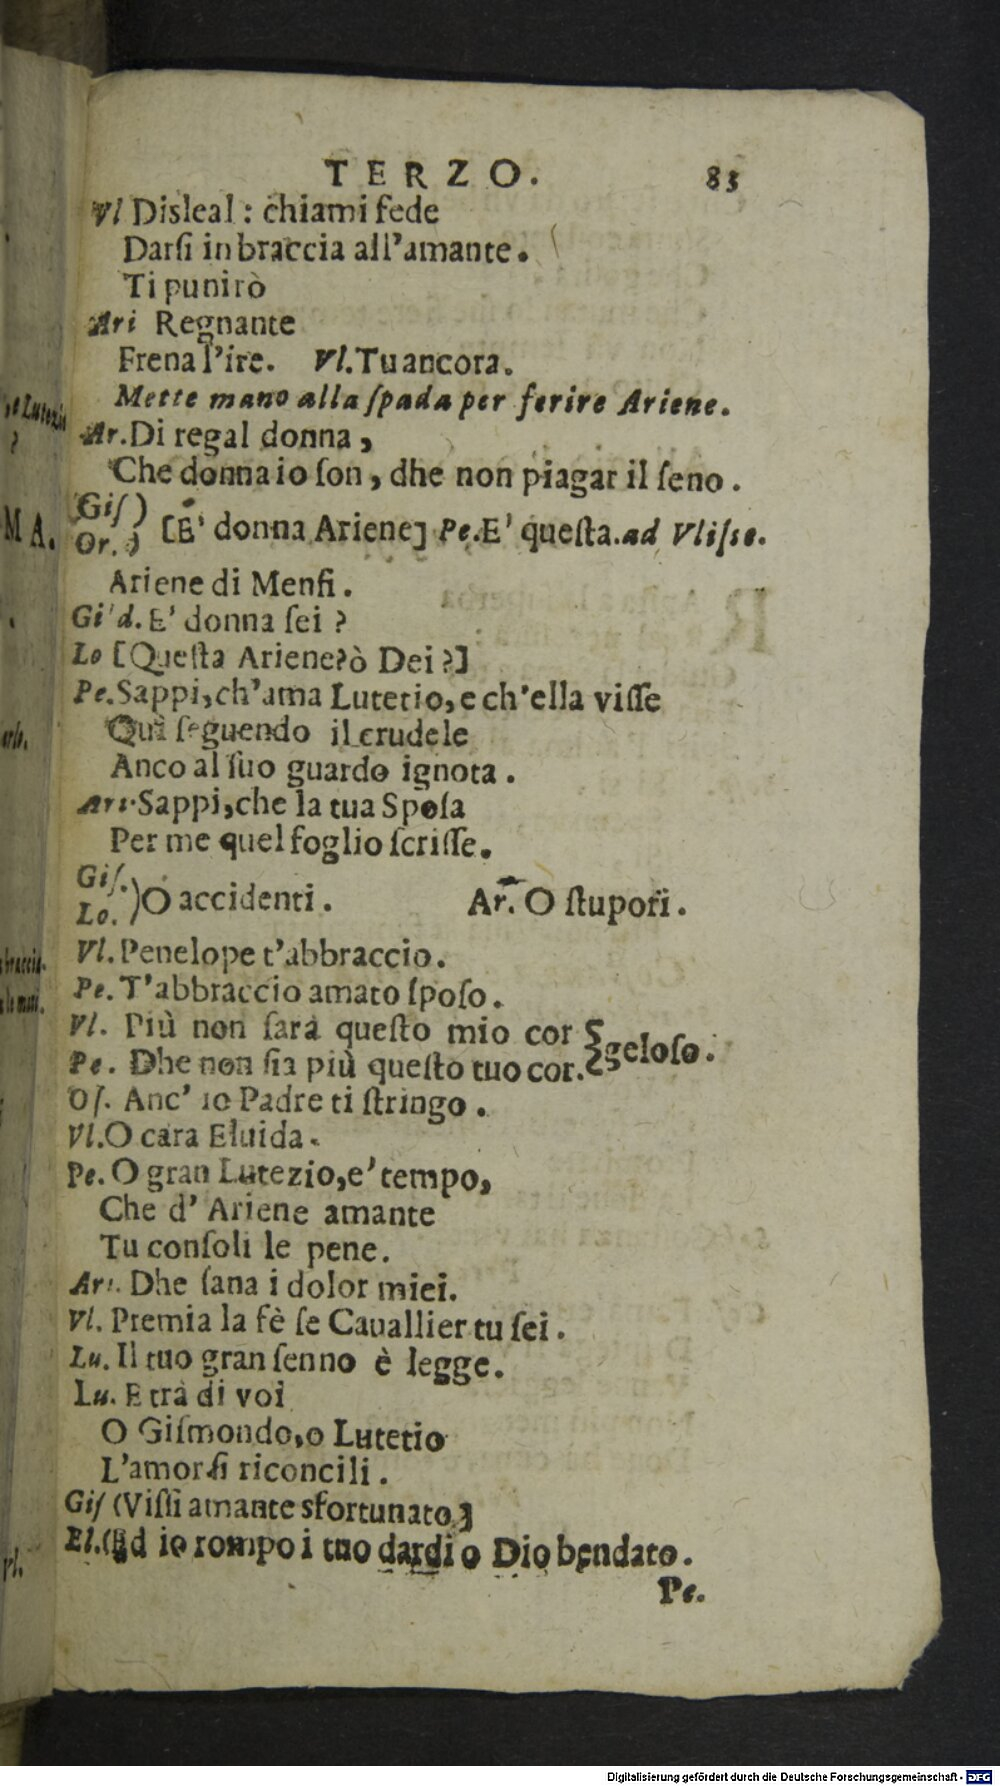 TERZO. 83
Vl Disleal : chiami fede
Darſi in braccia all'amante.
Ti punirò
Ari Regnante
Frena l'ire. Vl. Tu ancora.
Mette mano alla ſpada per ferire Ariene.
Ar. Di regal donna,
Che donna io ſon, dhe non piagar il ſeno.
Giſ)
Or. ) [E' donna Ariene] Pe. E' queſta. ad Vliſse.
Ariene di Menfi.
Gi'd. E' donna ſei ?
Lo [Queſta Ariene? ò Dei ?]
Pe. Sappi, ch'ama Lutetio, e ch'ella viſſe
Quì ſeguendo il crudele
Anco al ſuo guardo ignota.
Ari. Sappi, che la tua Spoſa
Per me quel foglio ſcriſſe.
Giſ.
Lo. )O accidenti. Ar. O ſtupori.
Vl. Penelope t'abbraccio.
Pe. T'abbraccio amato ſpoſo.
Vl. Più non ſarà queſto mio cor
Pe. Dhe non ſia più queſto tuo cor. geloſo.
Oſ. Anc' io Padre ti ſtringo.
Vl. O cara Eluida.
Pe. O gran Lutezio, e' tempo,
Che d' Ariene amante
Tu conſoli le pene.
Ari. Dhe ſana i dolor miei.
Vl. Premia la fè ſe Cauallier tu ſei.
Lu. Il tuo gran ſenno è legge.
Lu. E trà di voi
O Giſmondo, o Lutetio
L'amor ſi riconcili.
Giſ (Viſſi amante sfortunato]
El. (Ed io rompo i tuo dardi o Dio bendato.
Pe.
e Lutezio
?
MA.
Digitalisierung gefördert durch die Deutsche Forschungsgemeinschaft - DFG